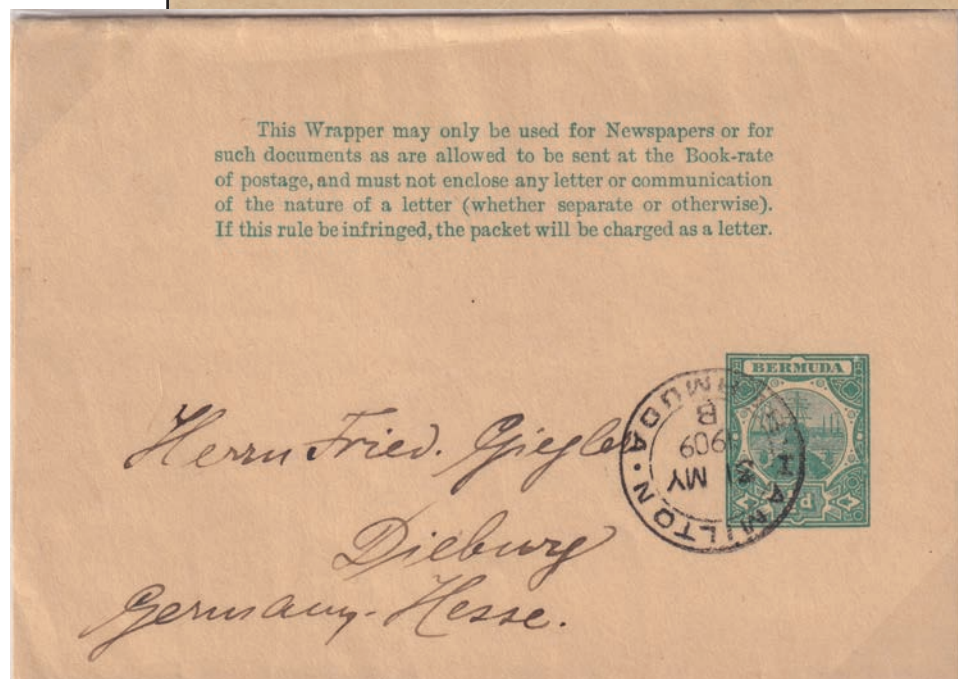 This Wrapper may only be used for Newspapers or for
such documents as are allowed to be sent at the Book-rate
of postage, and must not enclose any letter or communication
of the nature of a letter (whether separate or otherwise).
If this rule be infringed, the packet will be charged as a letter.
BERMUDA
HAMILTON · BERMUDA ·
B
1909
MY
Herrn Fried. Giegler
Dieburg
Germany-Hesse.